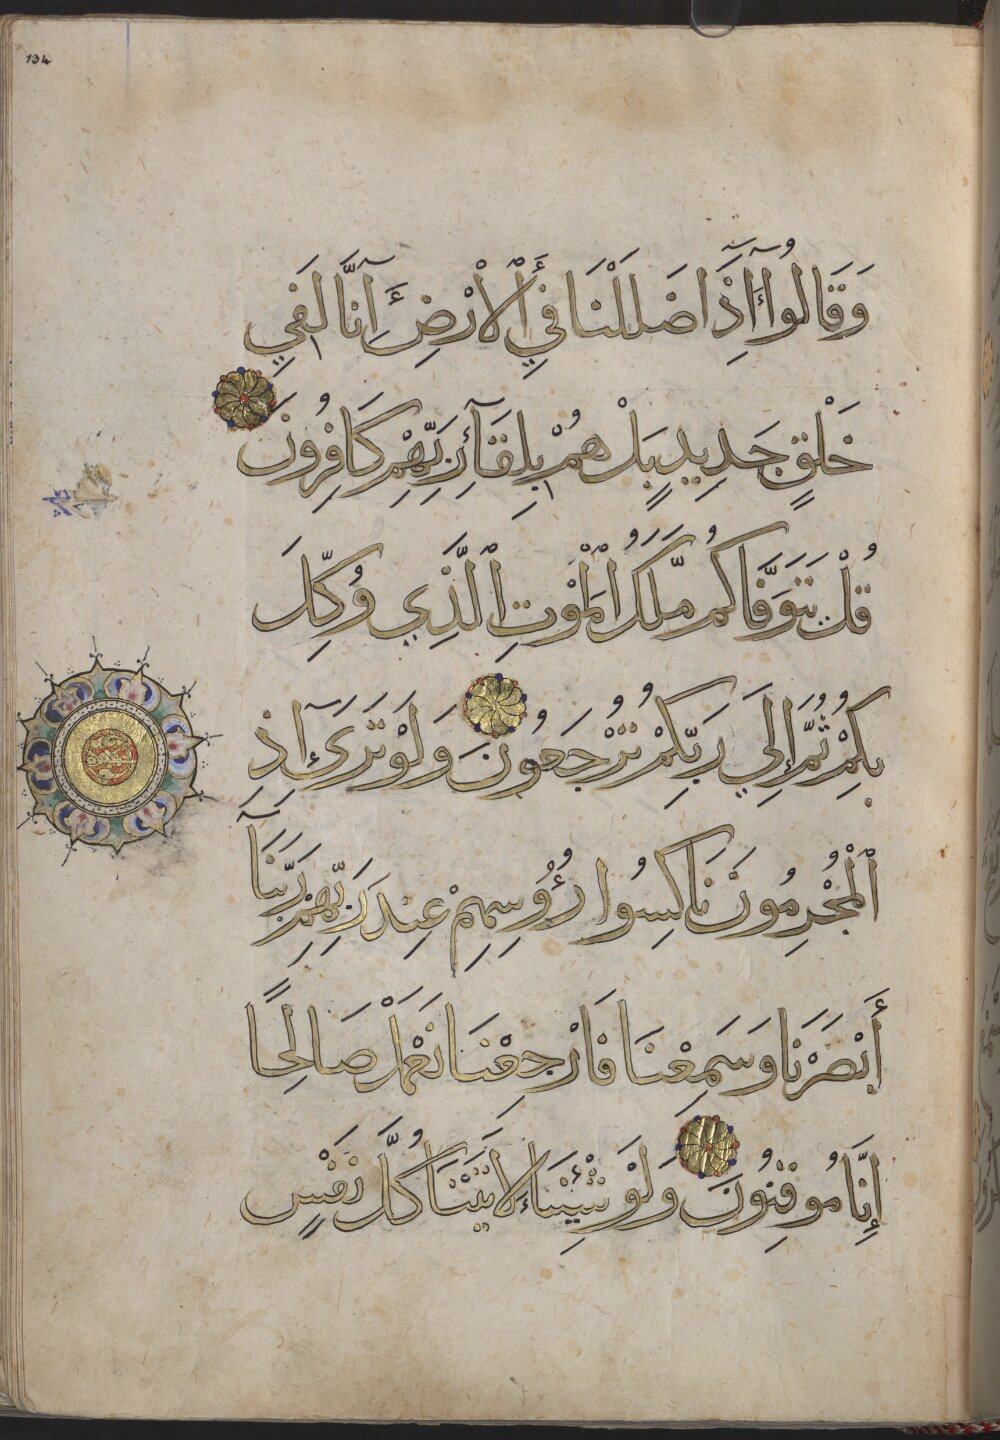 134
وَقَالُوٓاْ أَءِذَا ضَلَلْنَا فِي ٱلْأَرْضِ أَءِنَّا لَفِي
خَلْقٍ جَدِيدٍ بَلْ هُمْ بِلِقَآءِ رَبِّهِمْ كَافِرُونَ
قُلْ يَتَوَفَّاكُمْ مَّلَكُ ٱلْمَوْتِ ٱلَّذِي وُكِّلَ
بِكُمْ ثُمَّ إِلَي رَبِّكُمْ تُرْجَعُونَ وَلَوْ تَرَىٓ إِذِ
ٱلْمُجْرِمُونَ نَاكِسُوا رُؤُوسِهِمْ عِندَ رَبِّهِمْ رَبَّنَآ
أَبْصَرْنَا وَسَمِعْنَا فَارْجِعْنَا نَعْمَلْ صَالِحًا
إِنَّا مُوقِنُونَ وَلَوْ شِئْنَا لَأتَيْنَا كُلَّ نَفْسٍ